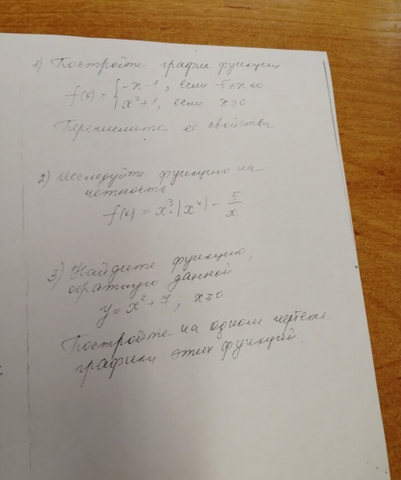 1) Постройте график функции
f(x) = { -x-1, если -5≤x<0
x²+1, если x≥0
Перечислите её свойства
2) Исследуйте функцию на
четность
f(x) = x³·|x⁴| - 5/x
3) Найдите функцию,
обратную данной
y = x² + 7, x≥0
Постройте на одном чертеже
графики этих функций.